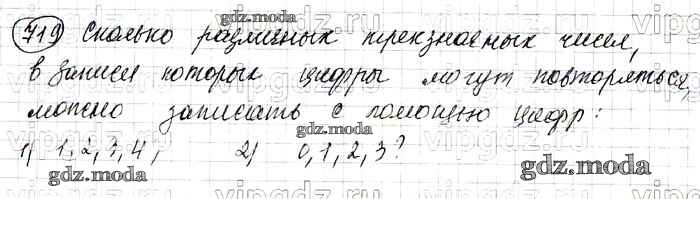 719 Сколько различных трехзначных чисел,
в записи которых цифры могут повторяться,
можно записать с помощью цифр:
1) 1, 2, 3, 4; 2) 0, 1, 2, 3?
gdz.moda
gdz.moda
gdz.moda
gdz.moda
gdz.moda
vipgdz.ru
vipgdz.ru
vipgdz.ru